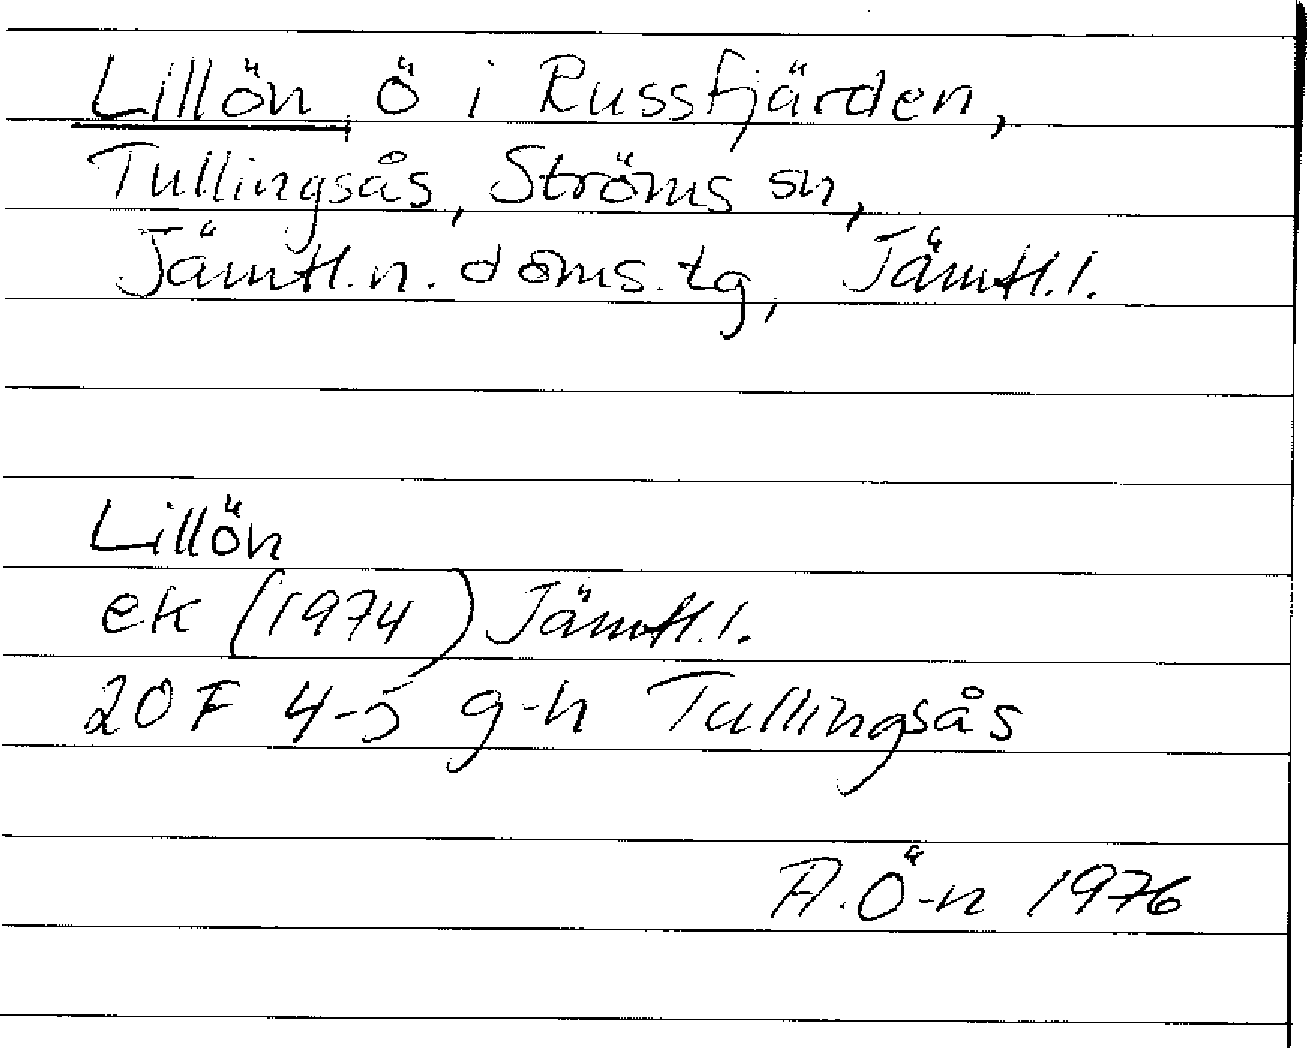 Lillön ö i Russfjärden,
Tullingsås, Ströms sn,
Jämtl.n. doms.tg, Jämtl.l.
Lillön
ek (1974) Jämtl.l.
20F 4-5 g-h Tullingsås
A.Ö-n 1976